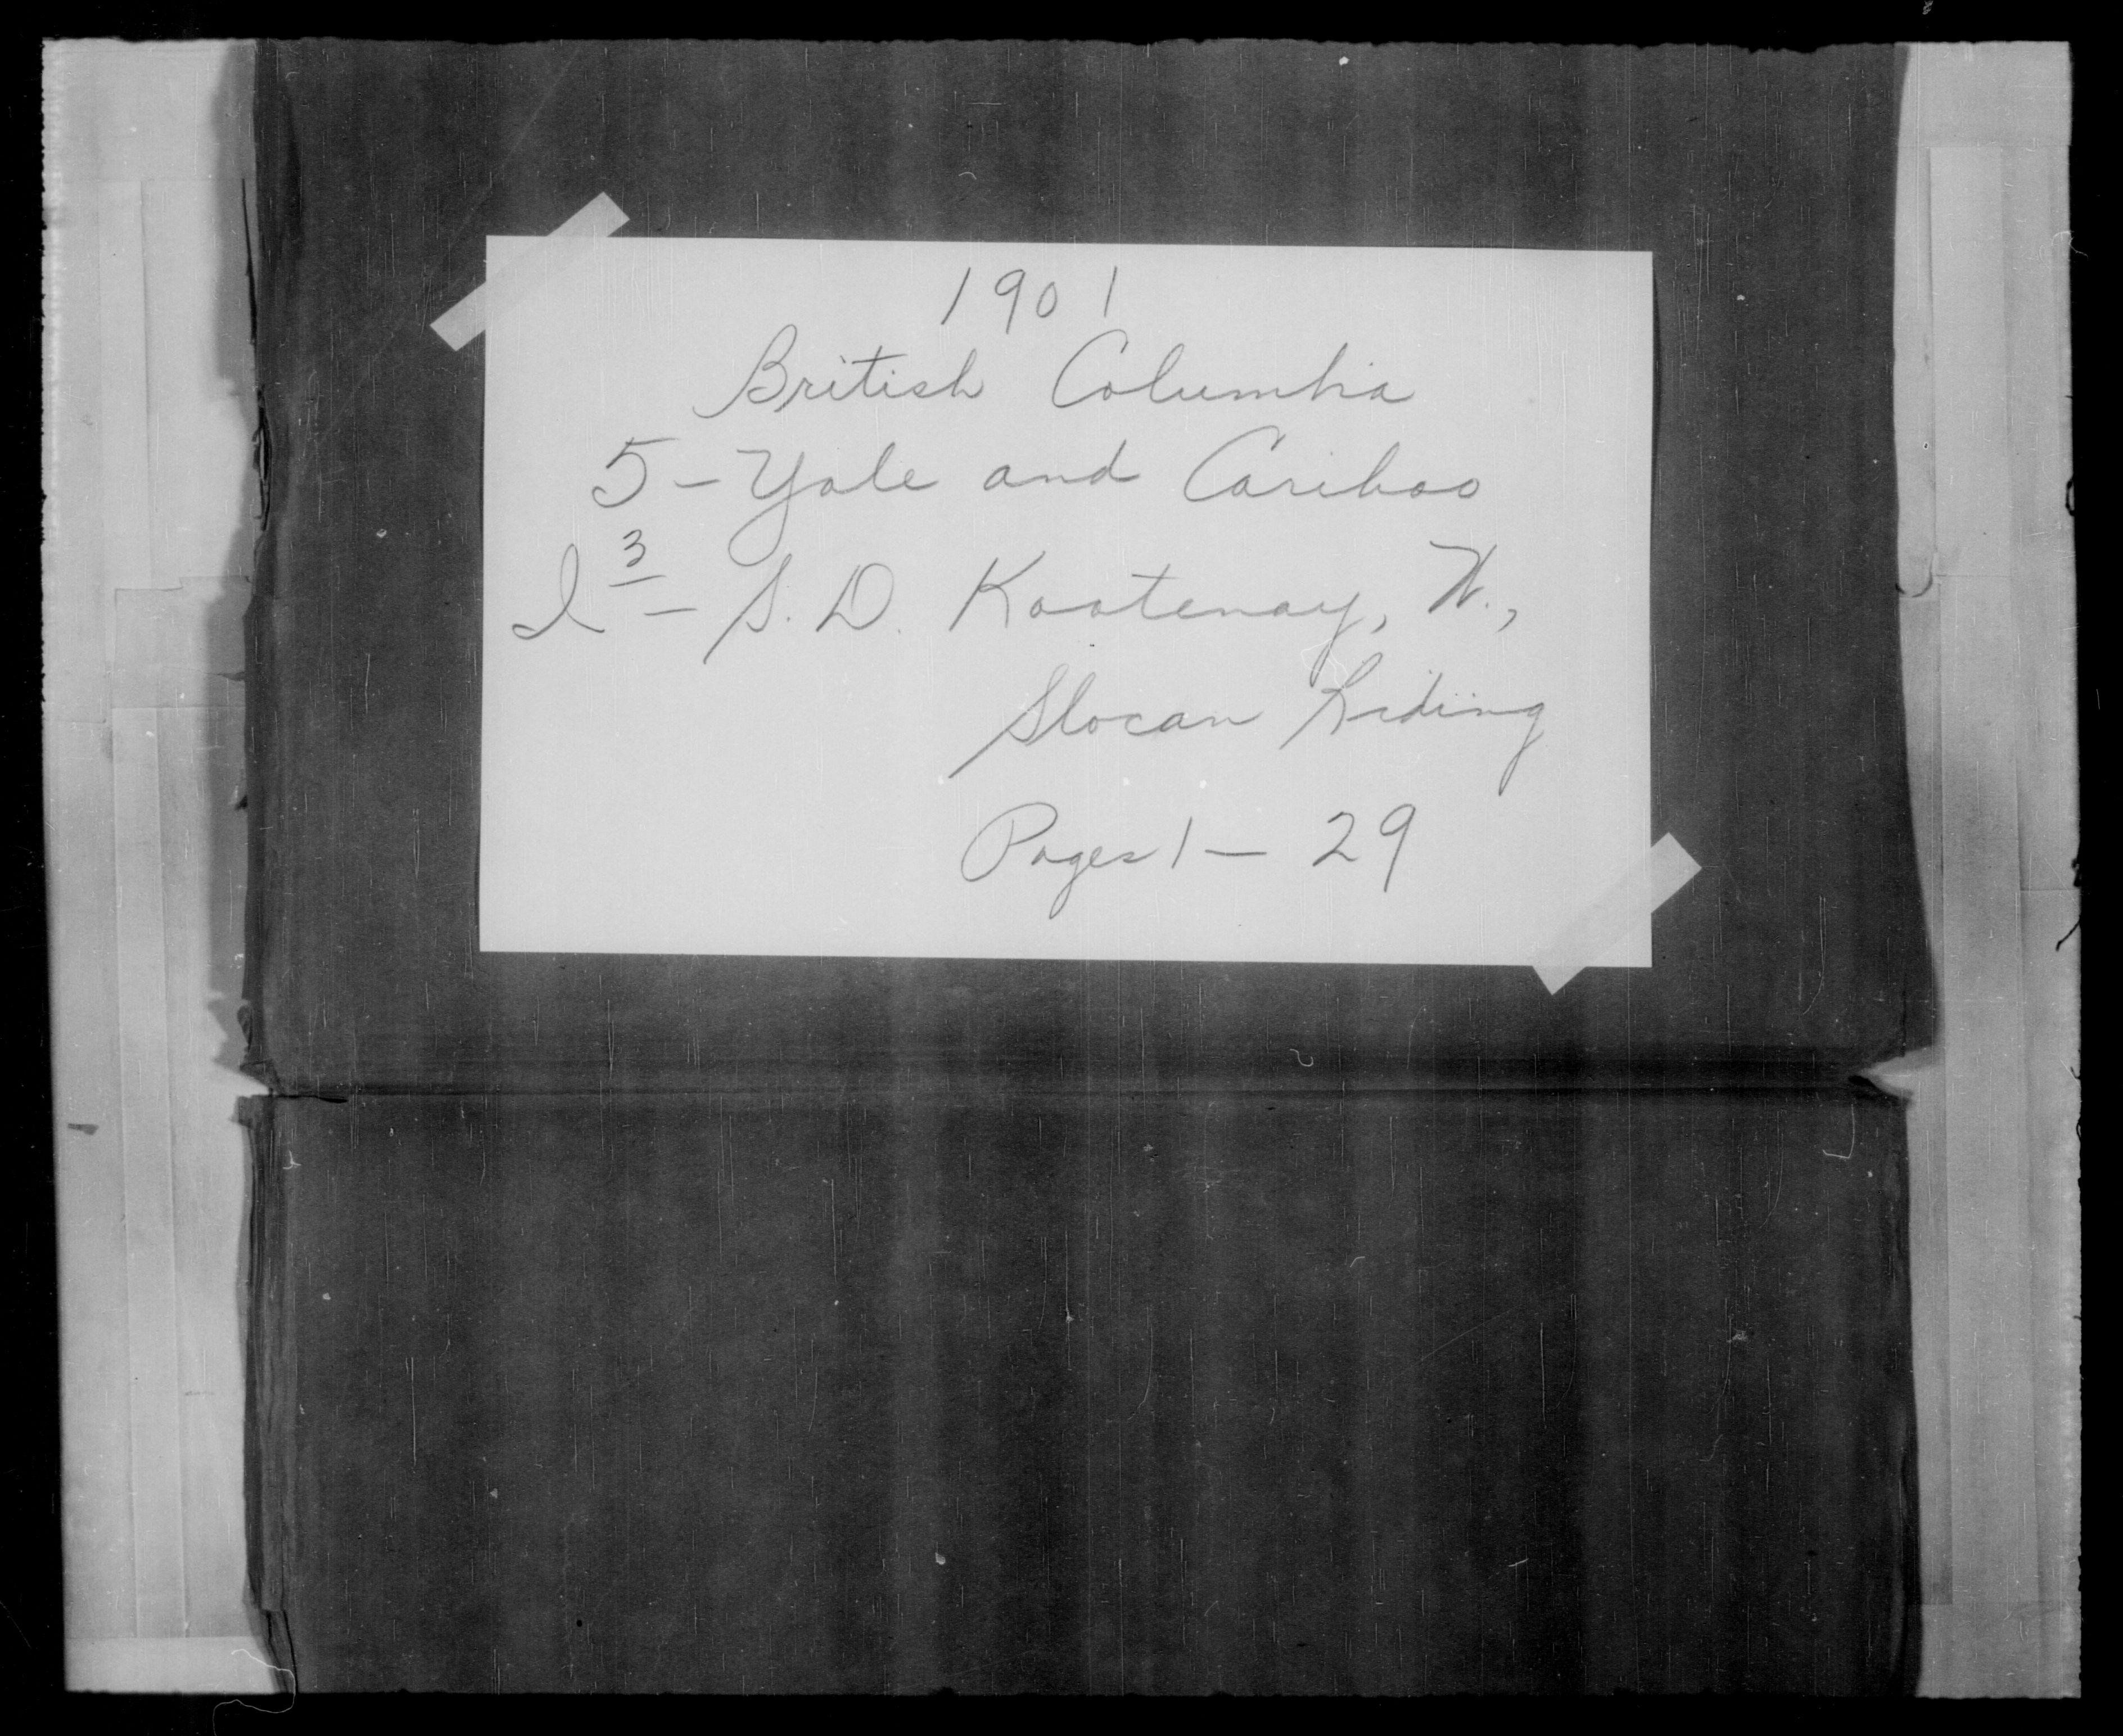 1901
British Columbia
5 - Yale and Cariboo
l 3 - S. D. Kootenay, W.,
Slocan Riding
Pages 1 — 29